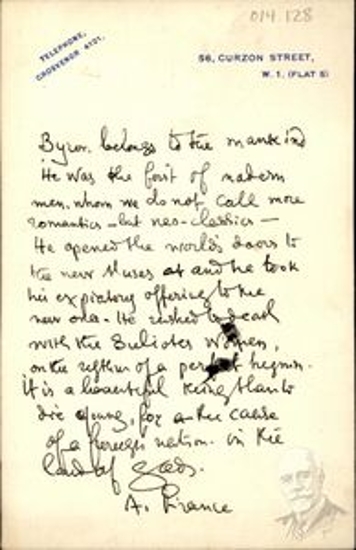 014.128
TELEPHONE,
GROSVENOR 4121.
56, CURZON STREET,
W. 1. (FLAT 5)
Byron belongs to the mankind
He was the first of modern
men, whom we do not call more
romantics – but neo-classics –
He opened the world's doors to
the new Muses and he took
his expiatory offering to the
new ones. He rushed to death
with the Suliotes Women,
on the rythm of a perfect hymn.
It is a beautiful thing than to
die young, for the cause
of a foreign nation. in the
land of gods.
A. France